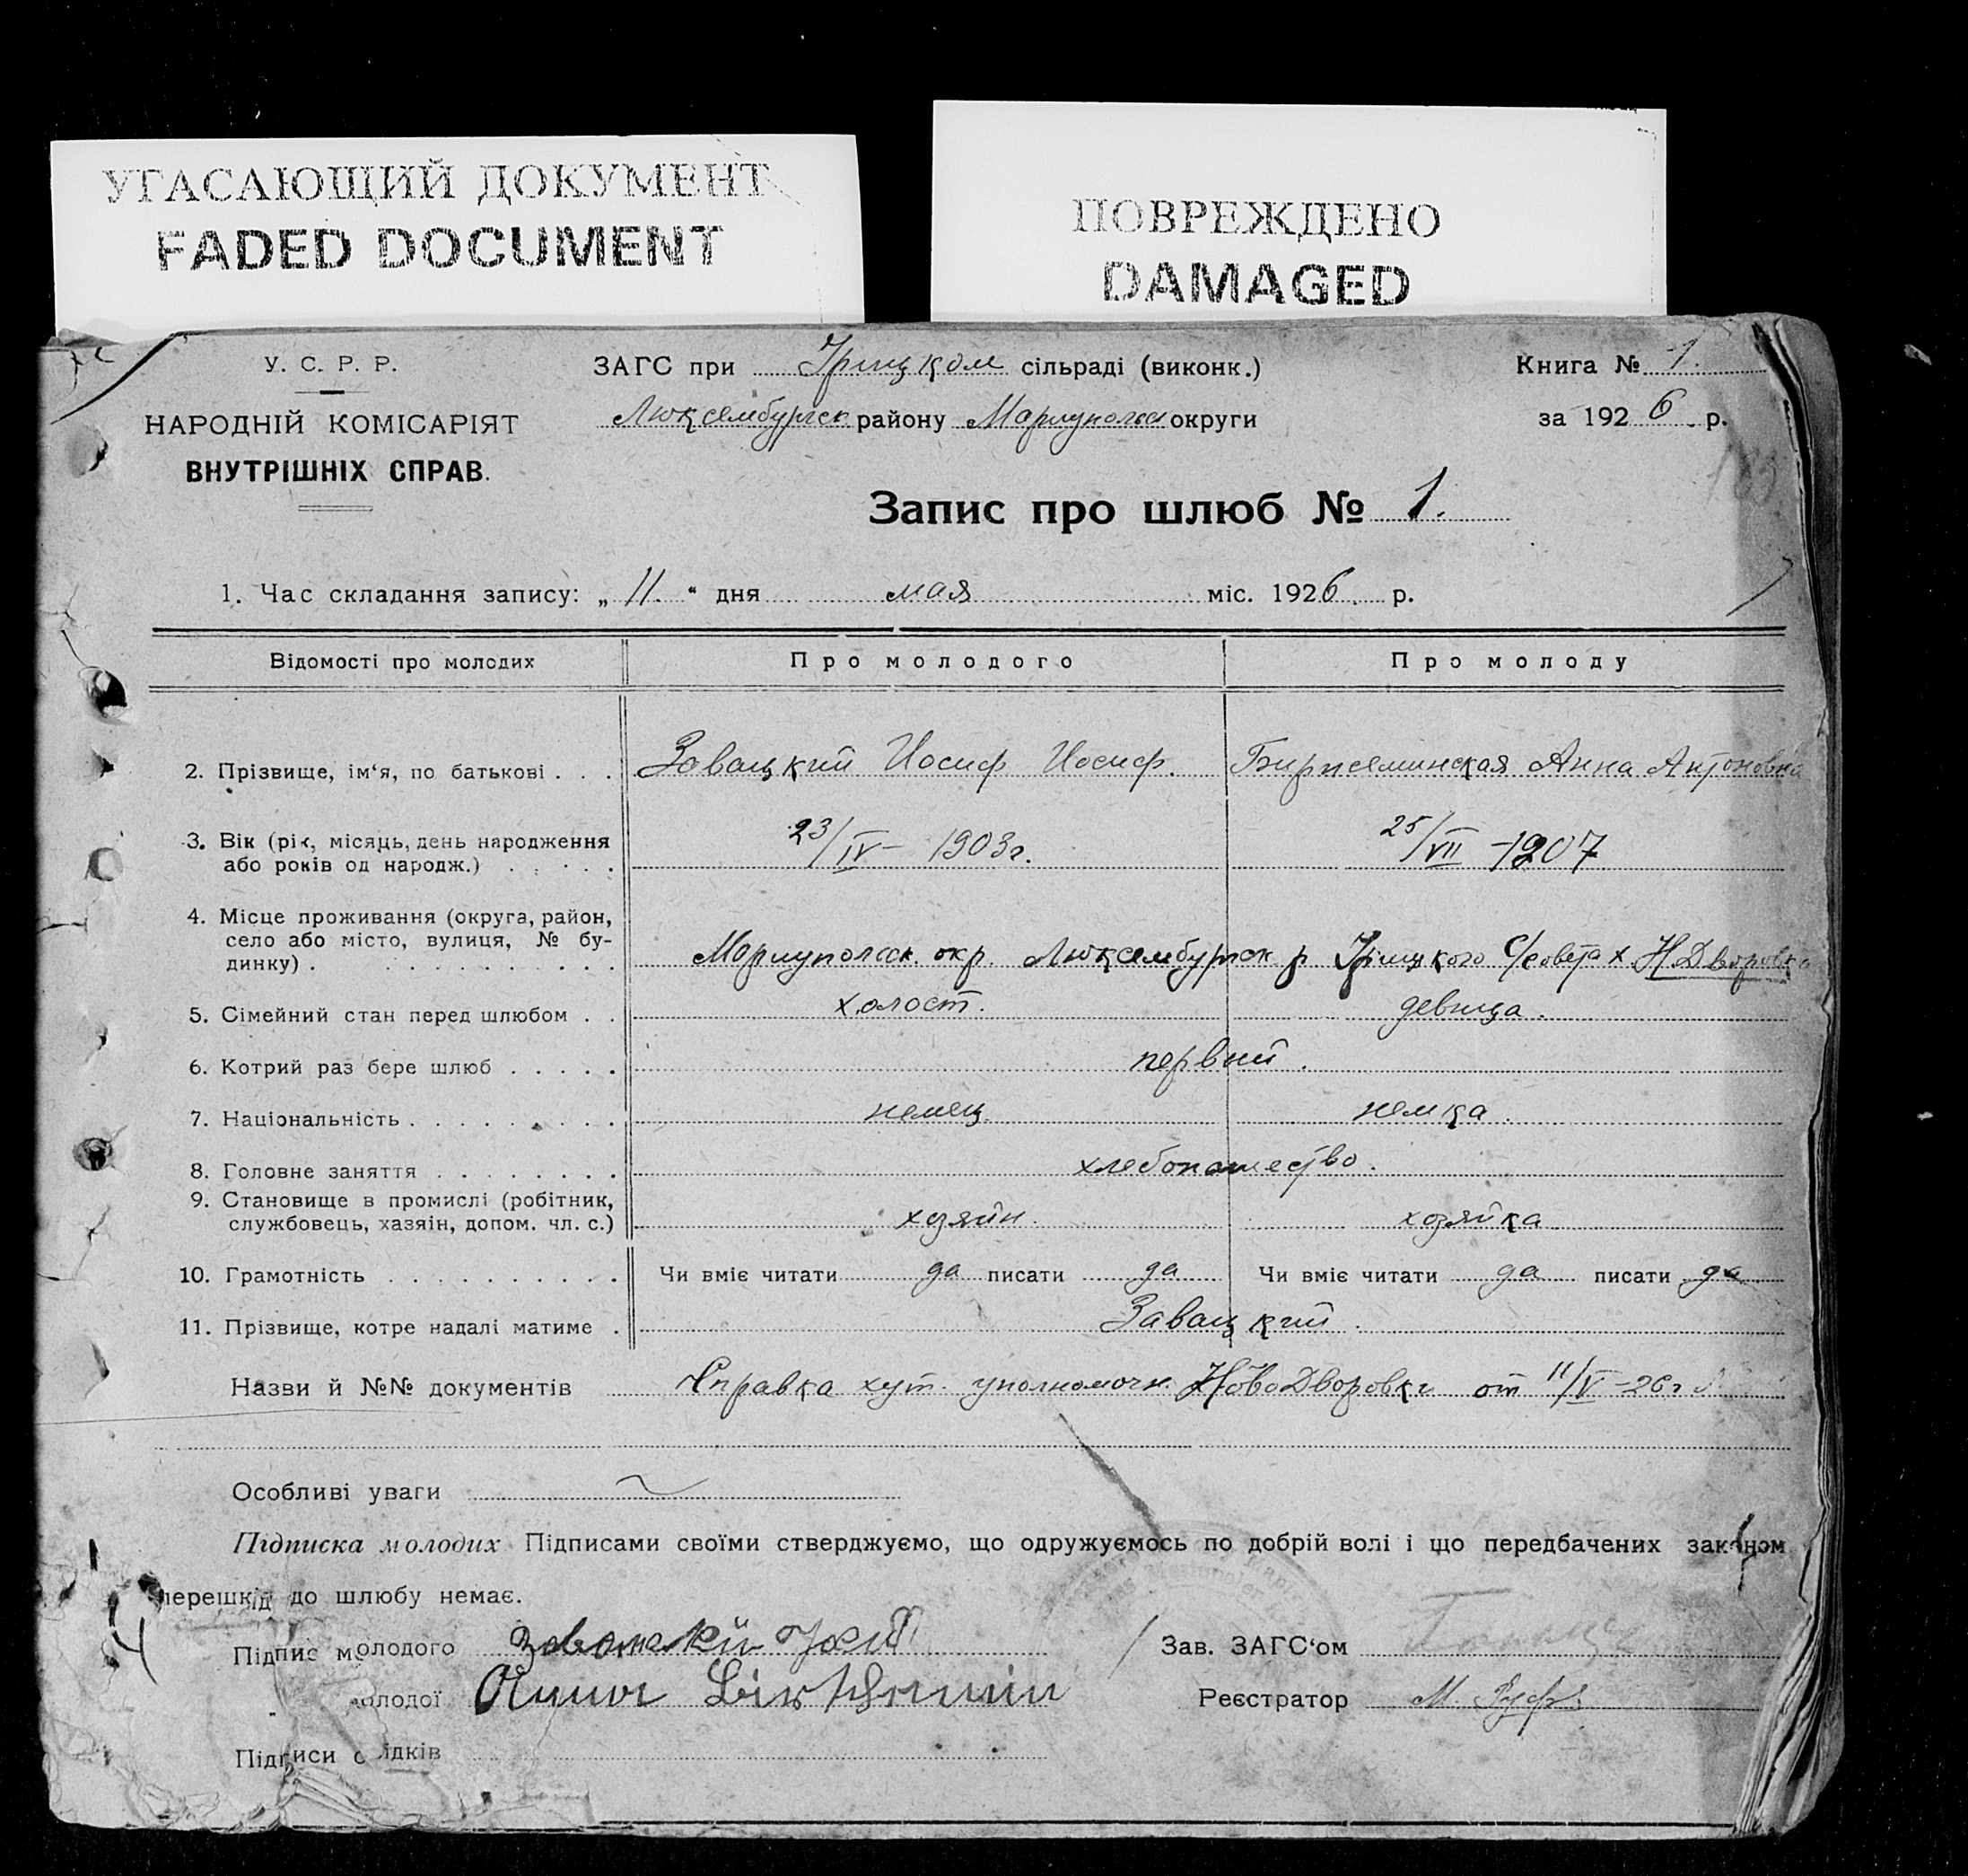 УГАСАЮЩИЙ ДОКУМЕНТ
FADED DOCUMENT
ПОВРЕЖДЕНО
DAMAGED
У. С. Р. Р.
НАРОДНІЙ КОМІСАРІЯТ
ВНУТРІШНІХ СПРАВ.
ЗАГС при Гріцком сільраді (виконк.)
Люксембургск району Мариупольск округи
Книга № 1.
за 1926 р.
Запис про шлюб № 1.
1. Час складання запису: „ 11. “ дня мая міс. 1926. р.
Відомості про молодих Про молодого Про молоду
2. Прізвище, ім‘я, по батькові . . . Завацкий Иосиф Иосиф. Анна Антоновна
3. Вік (рік, місяць, день народження
або років од народж.) . . . . . 23/IV – 1903 г. 25/VII – 1907
4. Місце проживання (округа, район,
село або місто, вулиця, № бу-
динку) . . . . . . . . . . . Мариупольск. окр. Люксембургск р Гріцкого с/совета х. Н.Дворовка
5. Сімейний стан перед шлюбом . . холост. девица.
6. Котрий раз бере шлюб . . . . . первый.
7. Національність . . . . . . . . . немец. немка.
8. Головне заняття . . . . . . . . хлебопашество.
9. Становище в промислі (робітник,
службовець, хазяін, допом. чл. с.) хозяин. хозяйка
10. Грамотність . . . . . . . . . . Чи вміє читати да писати да Чи вміє читати да писати да
11. Прізвище, котре надалі матиме . Завацкий.
Назви й №№ документів Справка хут. уполномоч. НовоДворовки от 11/V–26 г
Особливі уваги
Підписка молодих Підписами своїми стверджуємо, що одружуємось по добрій волі і що передбачених законом
перешкід до шлюбу немає.
Підпис молодого
молодої
Підписи свідків
Зав. ЗАГС‘ом
Реєстратор М.